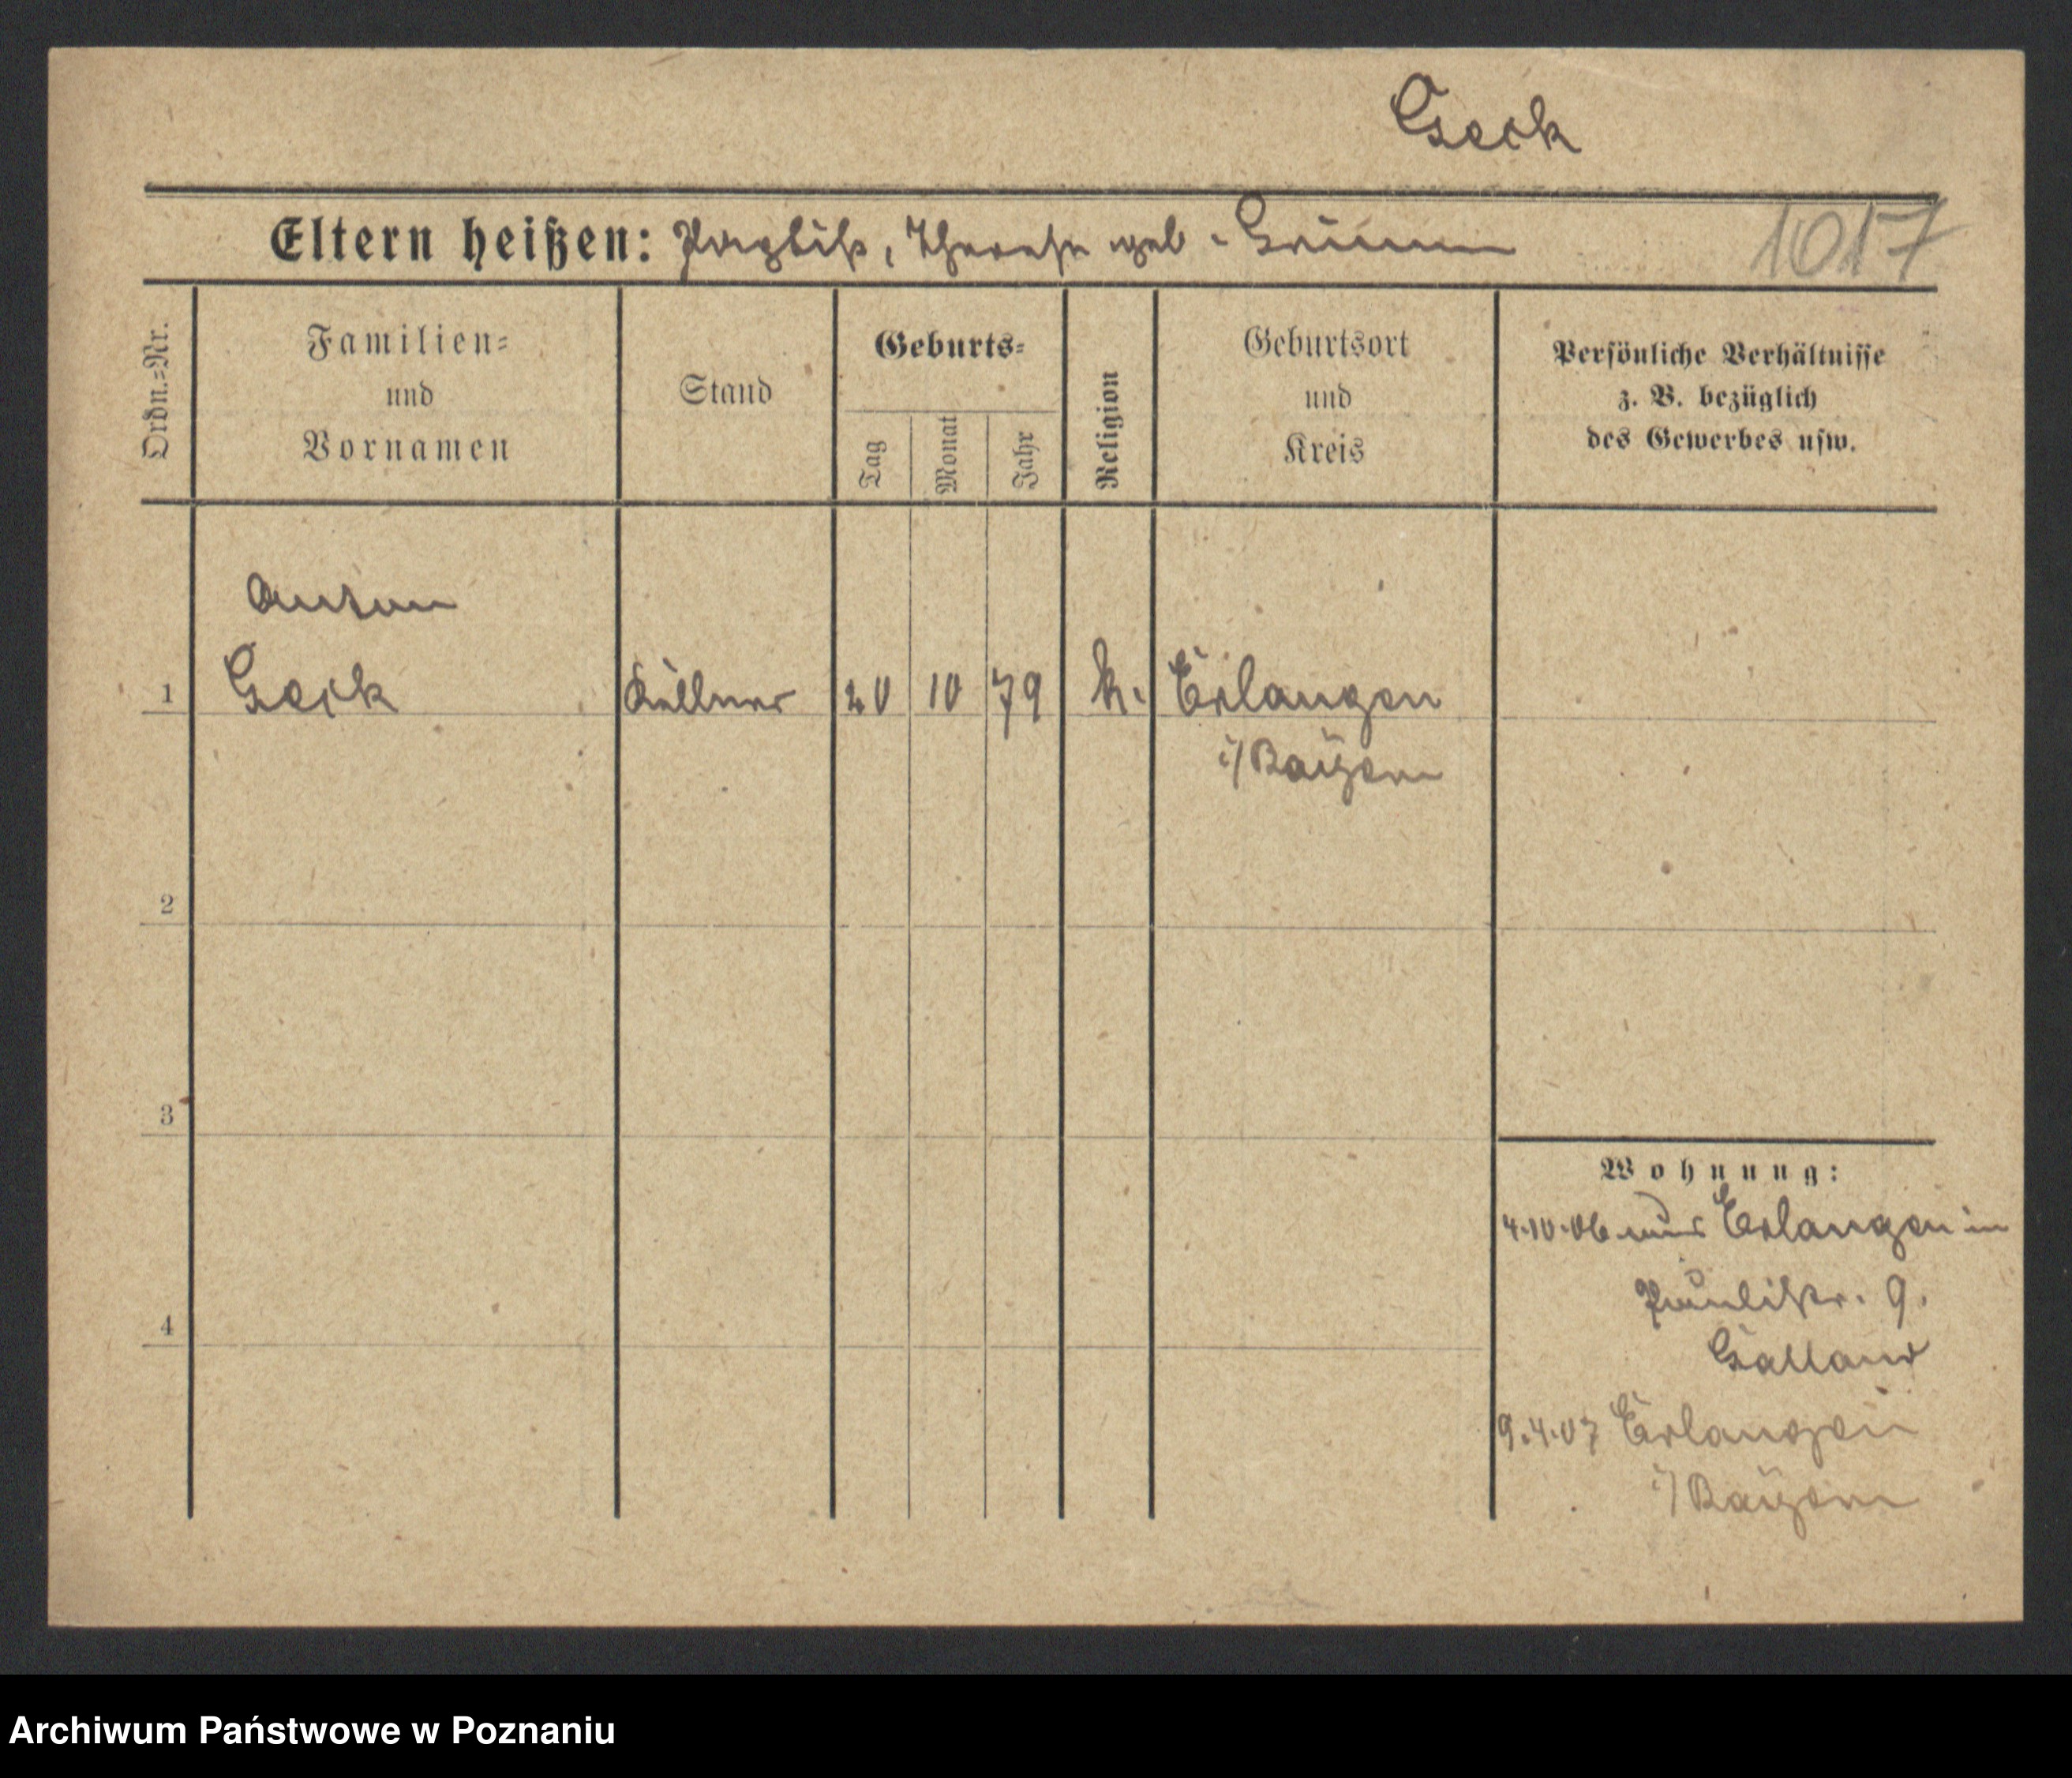 Geck
Eltern heißen: Therese geb. Grimm
1017
Ordn.=Nr.
Familien=
und
Vornamen
Stand
Geburts=
Tag
Monat
Jahr
Religion
Geburtsort
und
Kreis
Persönliche Verhältnisse
z. B. bezüglich
des Gewerbes usw.
Anton
1 Geck Kellner 20 10 79 k. Erlangen
i/Bayern
2
3
4
Wohnung:
4.10.06 aus Erlangen in
Paulistr. 9.
Galland
9.4.07 Erlangen
i/Bayern
Archiwum Państwowe w Poznaniu